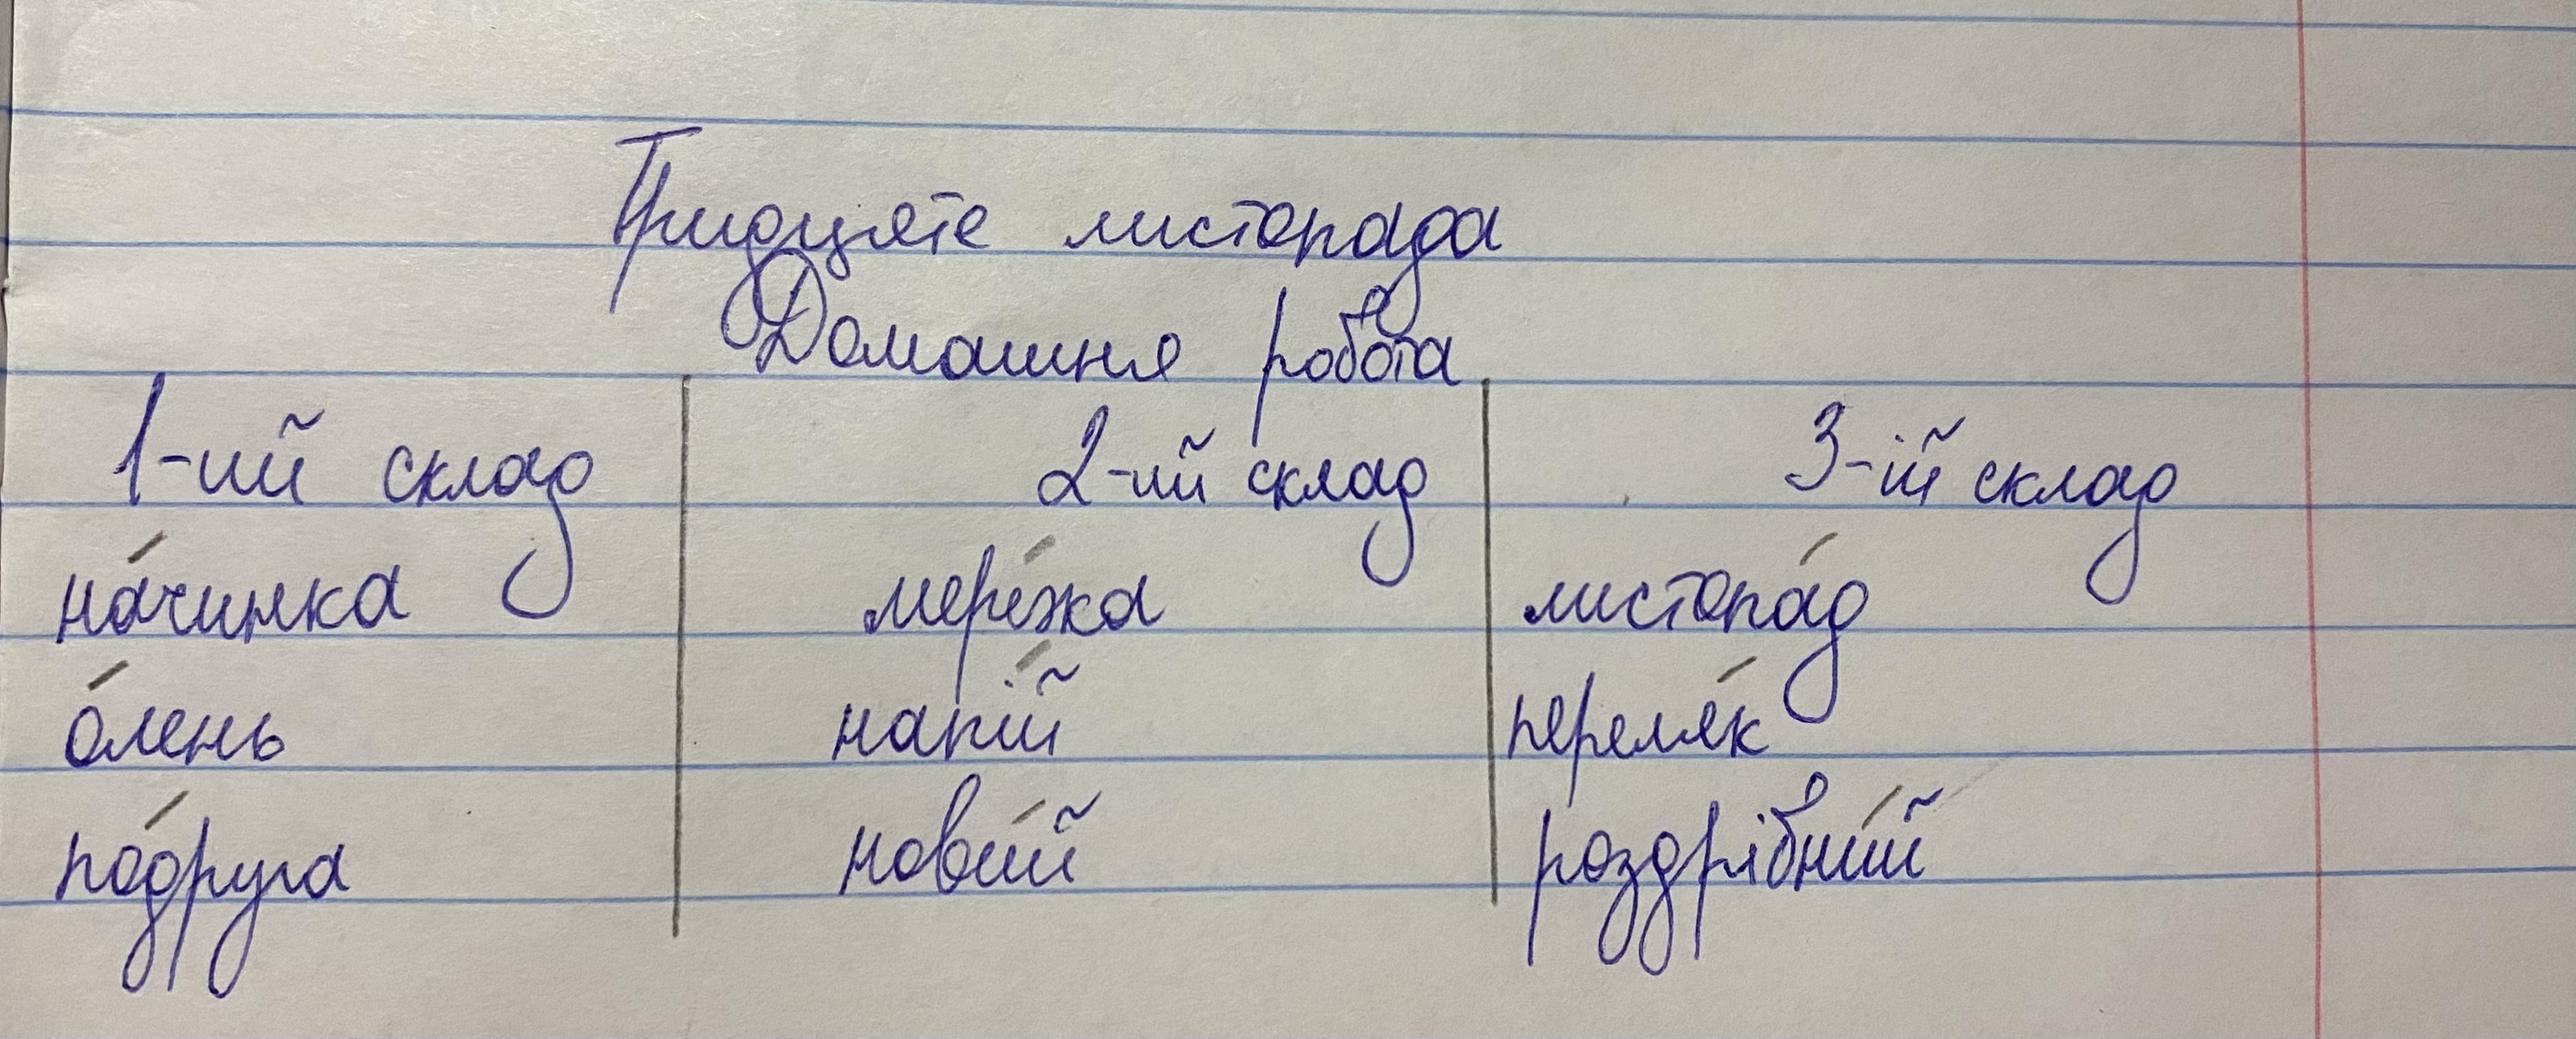 Тридцяте листопада
Домашня робота
1-ий склад 2-ий склад 3-ій склад
на́чинка мере́жа листопа́д
о́лень напі́й переля́к
по́друга нови́й роздрібни́й